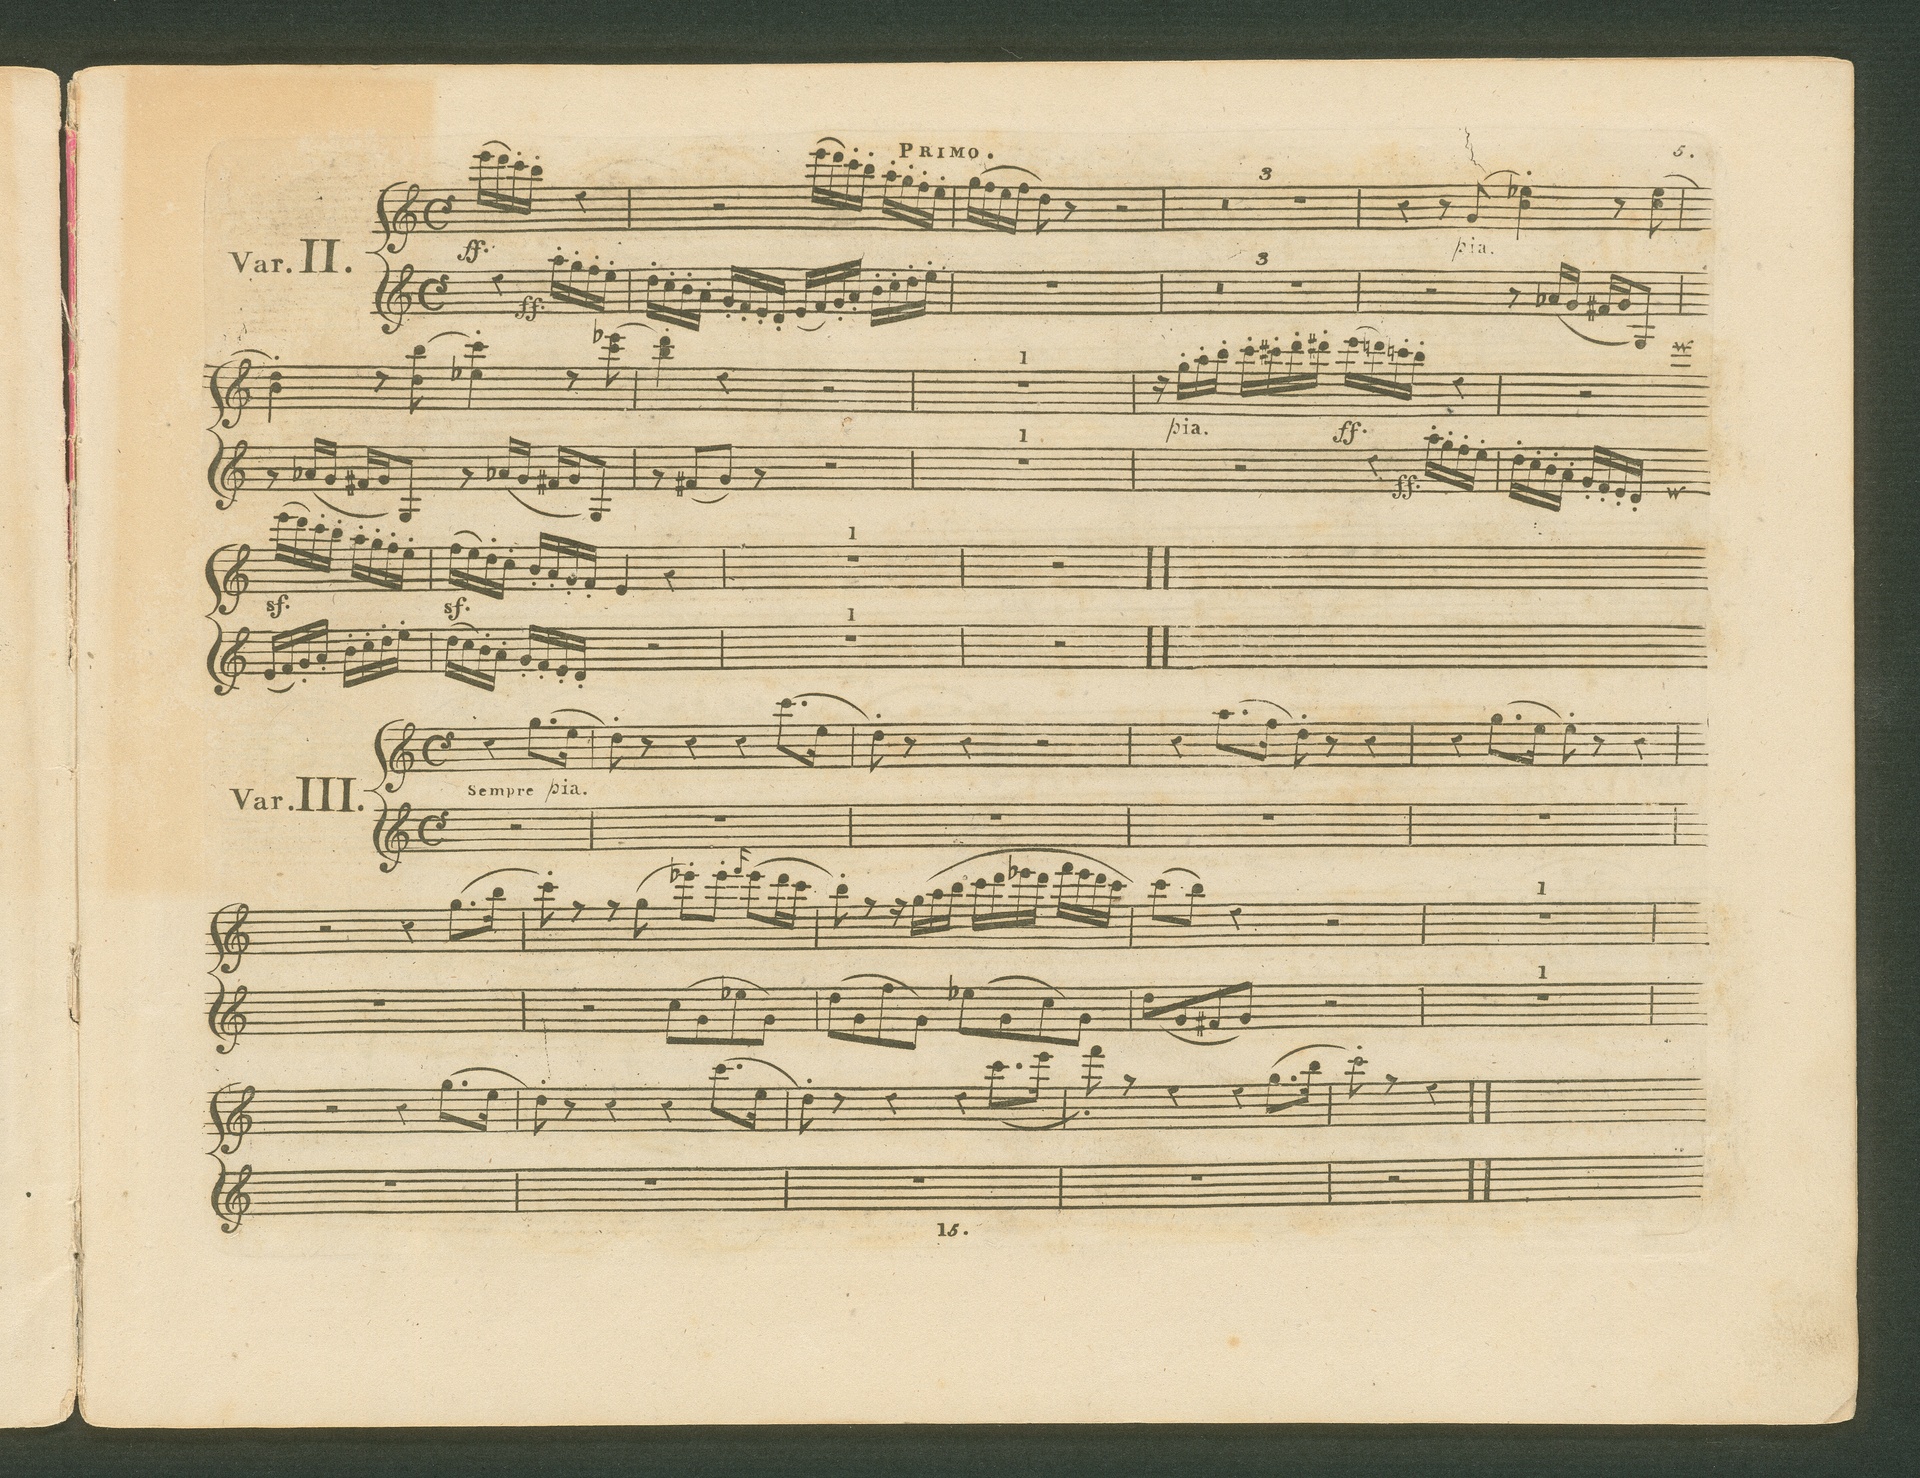 PRIMO.
5.
3
Var. II.
ff.
pia.
3
ff.
1
pia.
ff.
1
ff.
1
sf.
sf.
1
Var. III.
Sempre pia.
1
1
15.